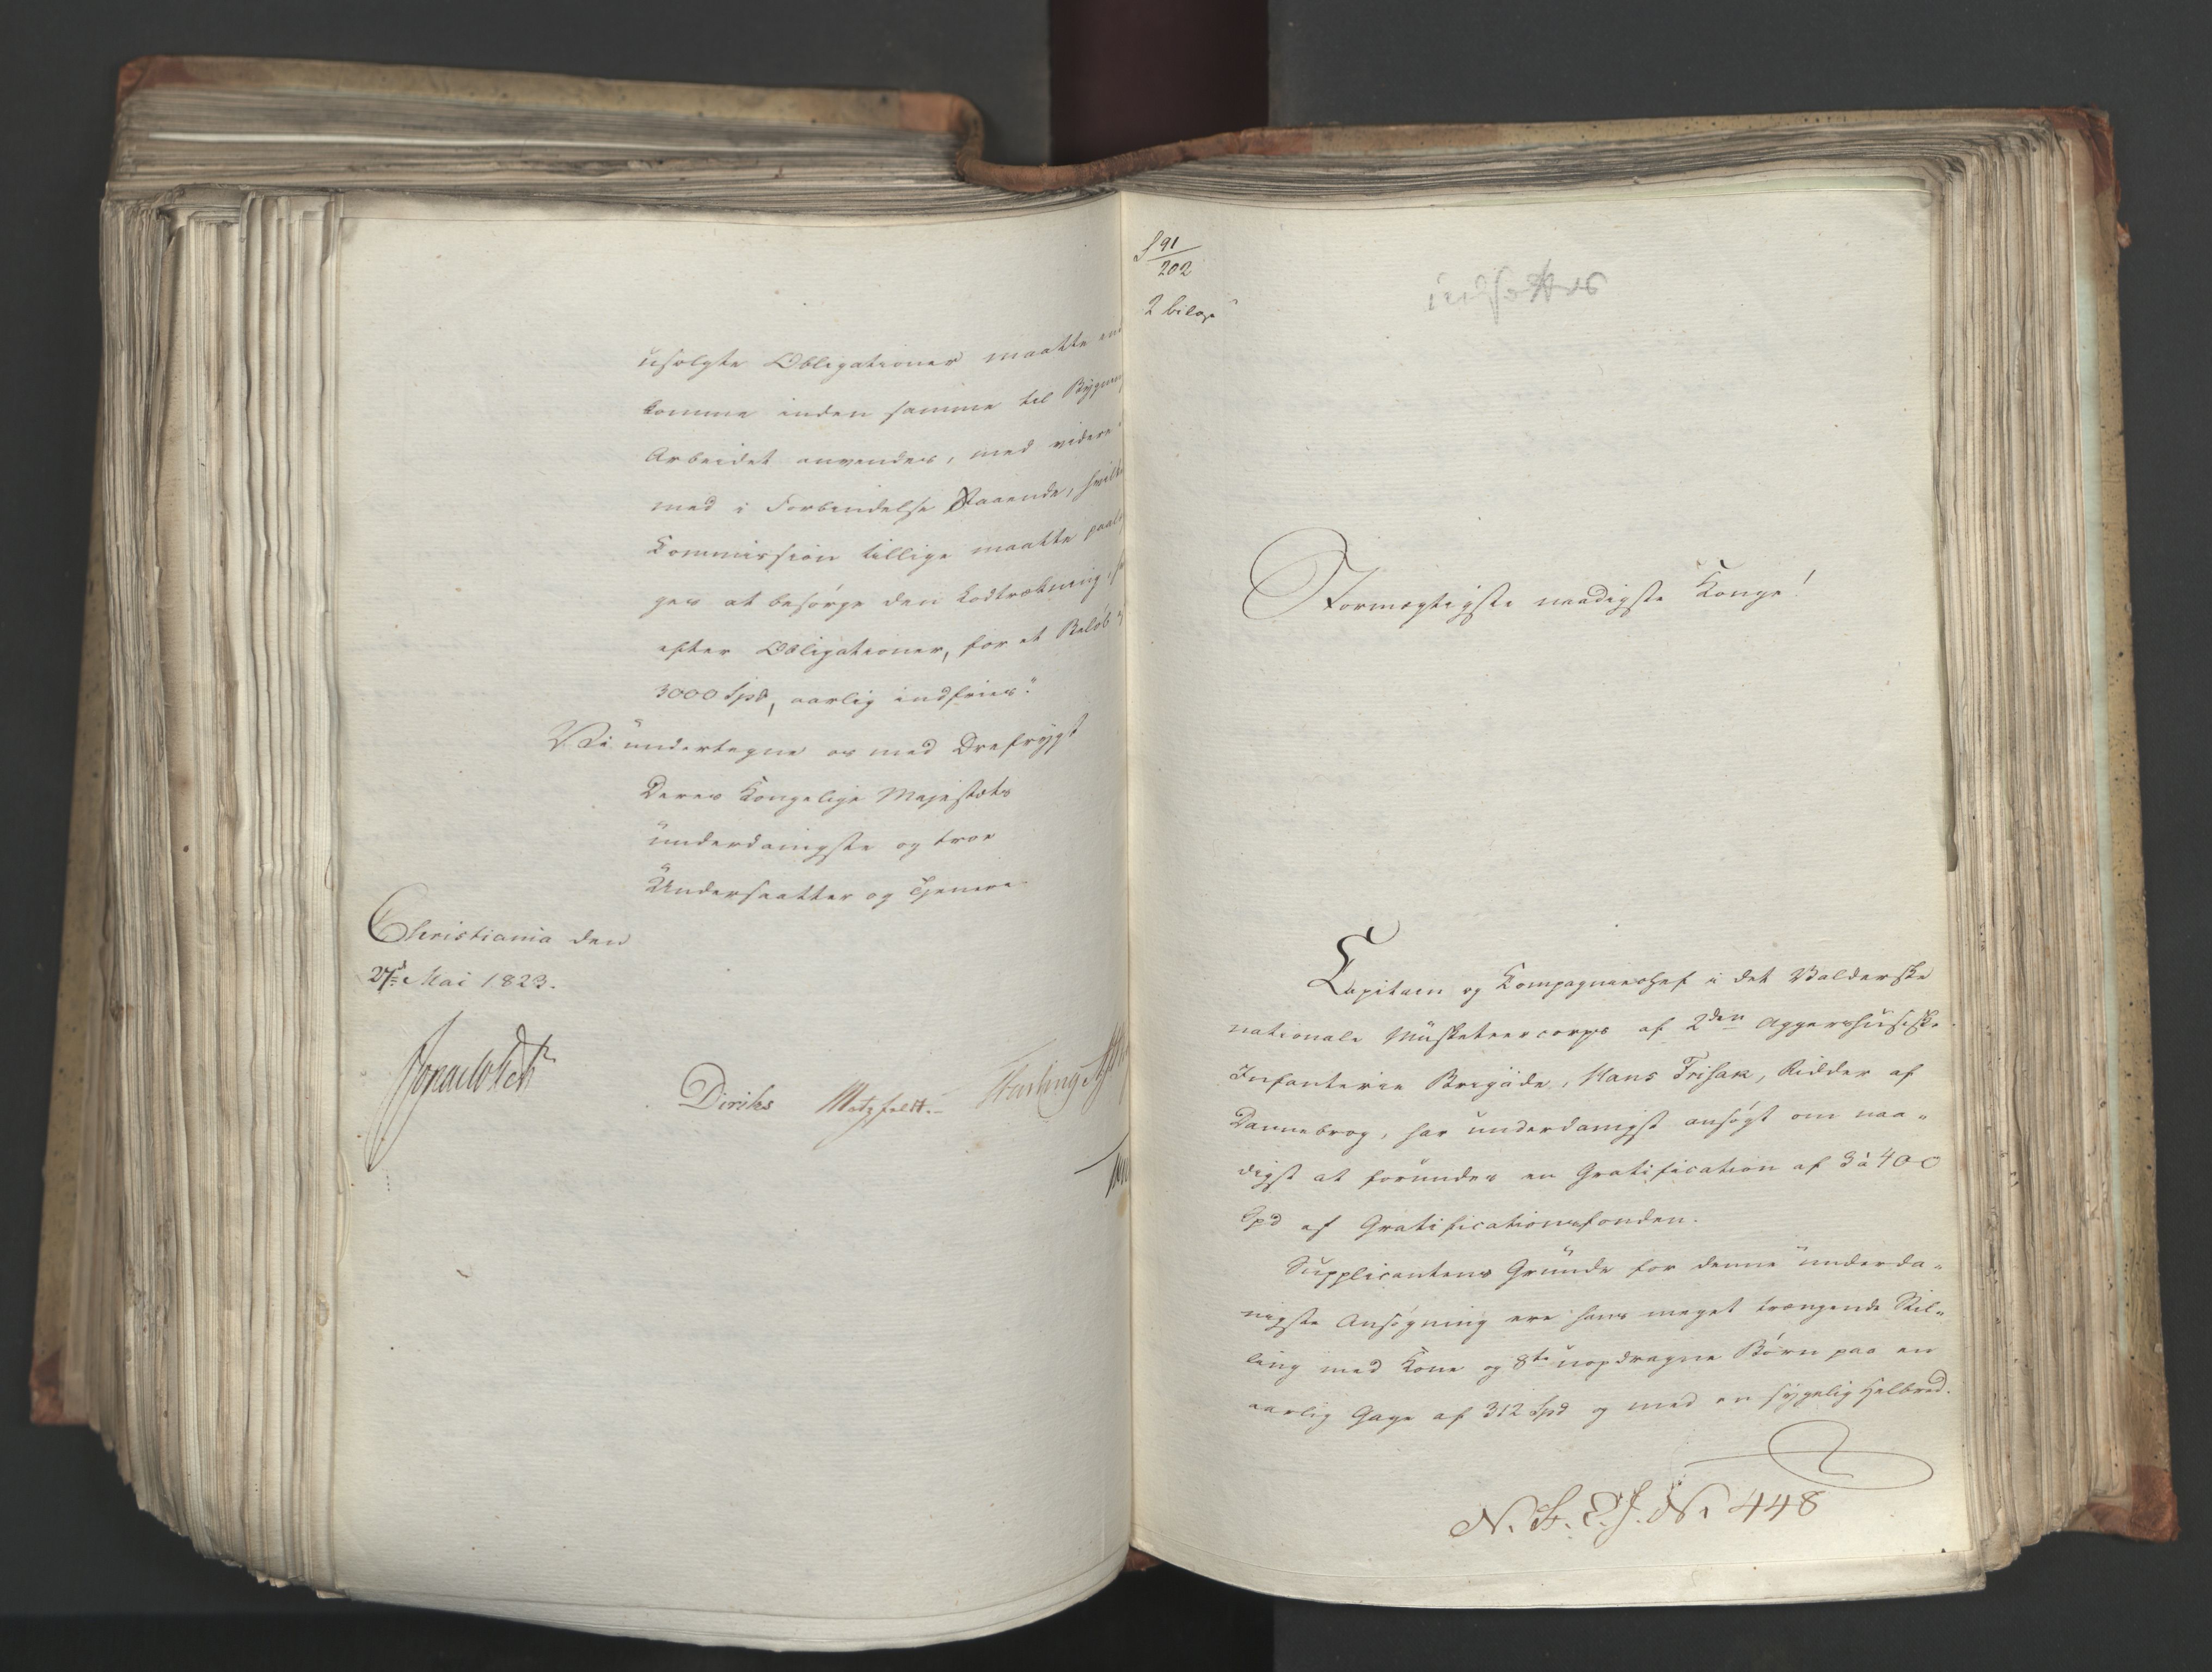 usolgte Obligationer maatte
komme inden samme til
Arbeidet anvendes, med videre
med i Forbindelse Staaende,
Kommission tillige maatte
ges at besörge den Lodtrækning,
efter Obligationer, for et Belöb
3000 Spd, aarlig indfries."
Vi undertegne os med Dyrefrygt
Deres Kongelige Majestæts
underdanigste og troe
Undersaatter og Tjenere
Christiania den
27d Mai 1823.
Diriks Motzfeldt.
S 91/202
2 bilag
indsættes
Stormægtigste naadigste Konge!
Capitain og Kompagniechef i det Valderske
nationale Musketeercorps af 2den Aggershusiske
Infanterie Brigade, Hans Frisak, Ridder af
Dannebrog, har underdanigst ansögt om naa-
digst at forundes en Gratification af 3 à 400
Spd af Gratificationsfonden.
Supplicantens Grunde for denne underda-
nigste Ansögning ere hans meget trængende Stil-
ling med Kone og 8te uopdragne Börn paa en
aarlig Gage af 312 Spd og med en sygelig Helbred.
N. 448